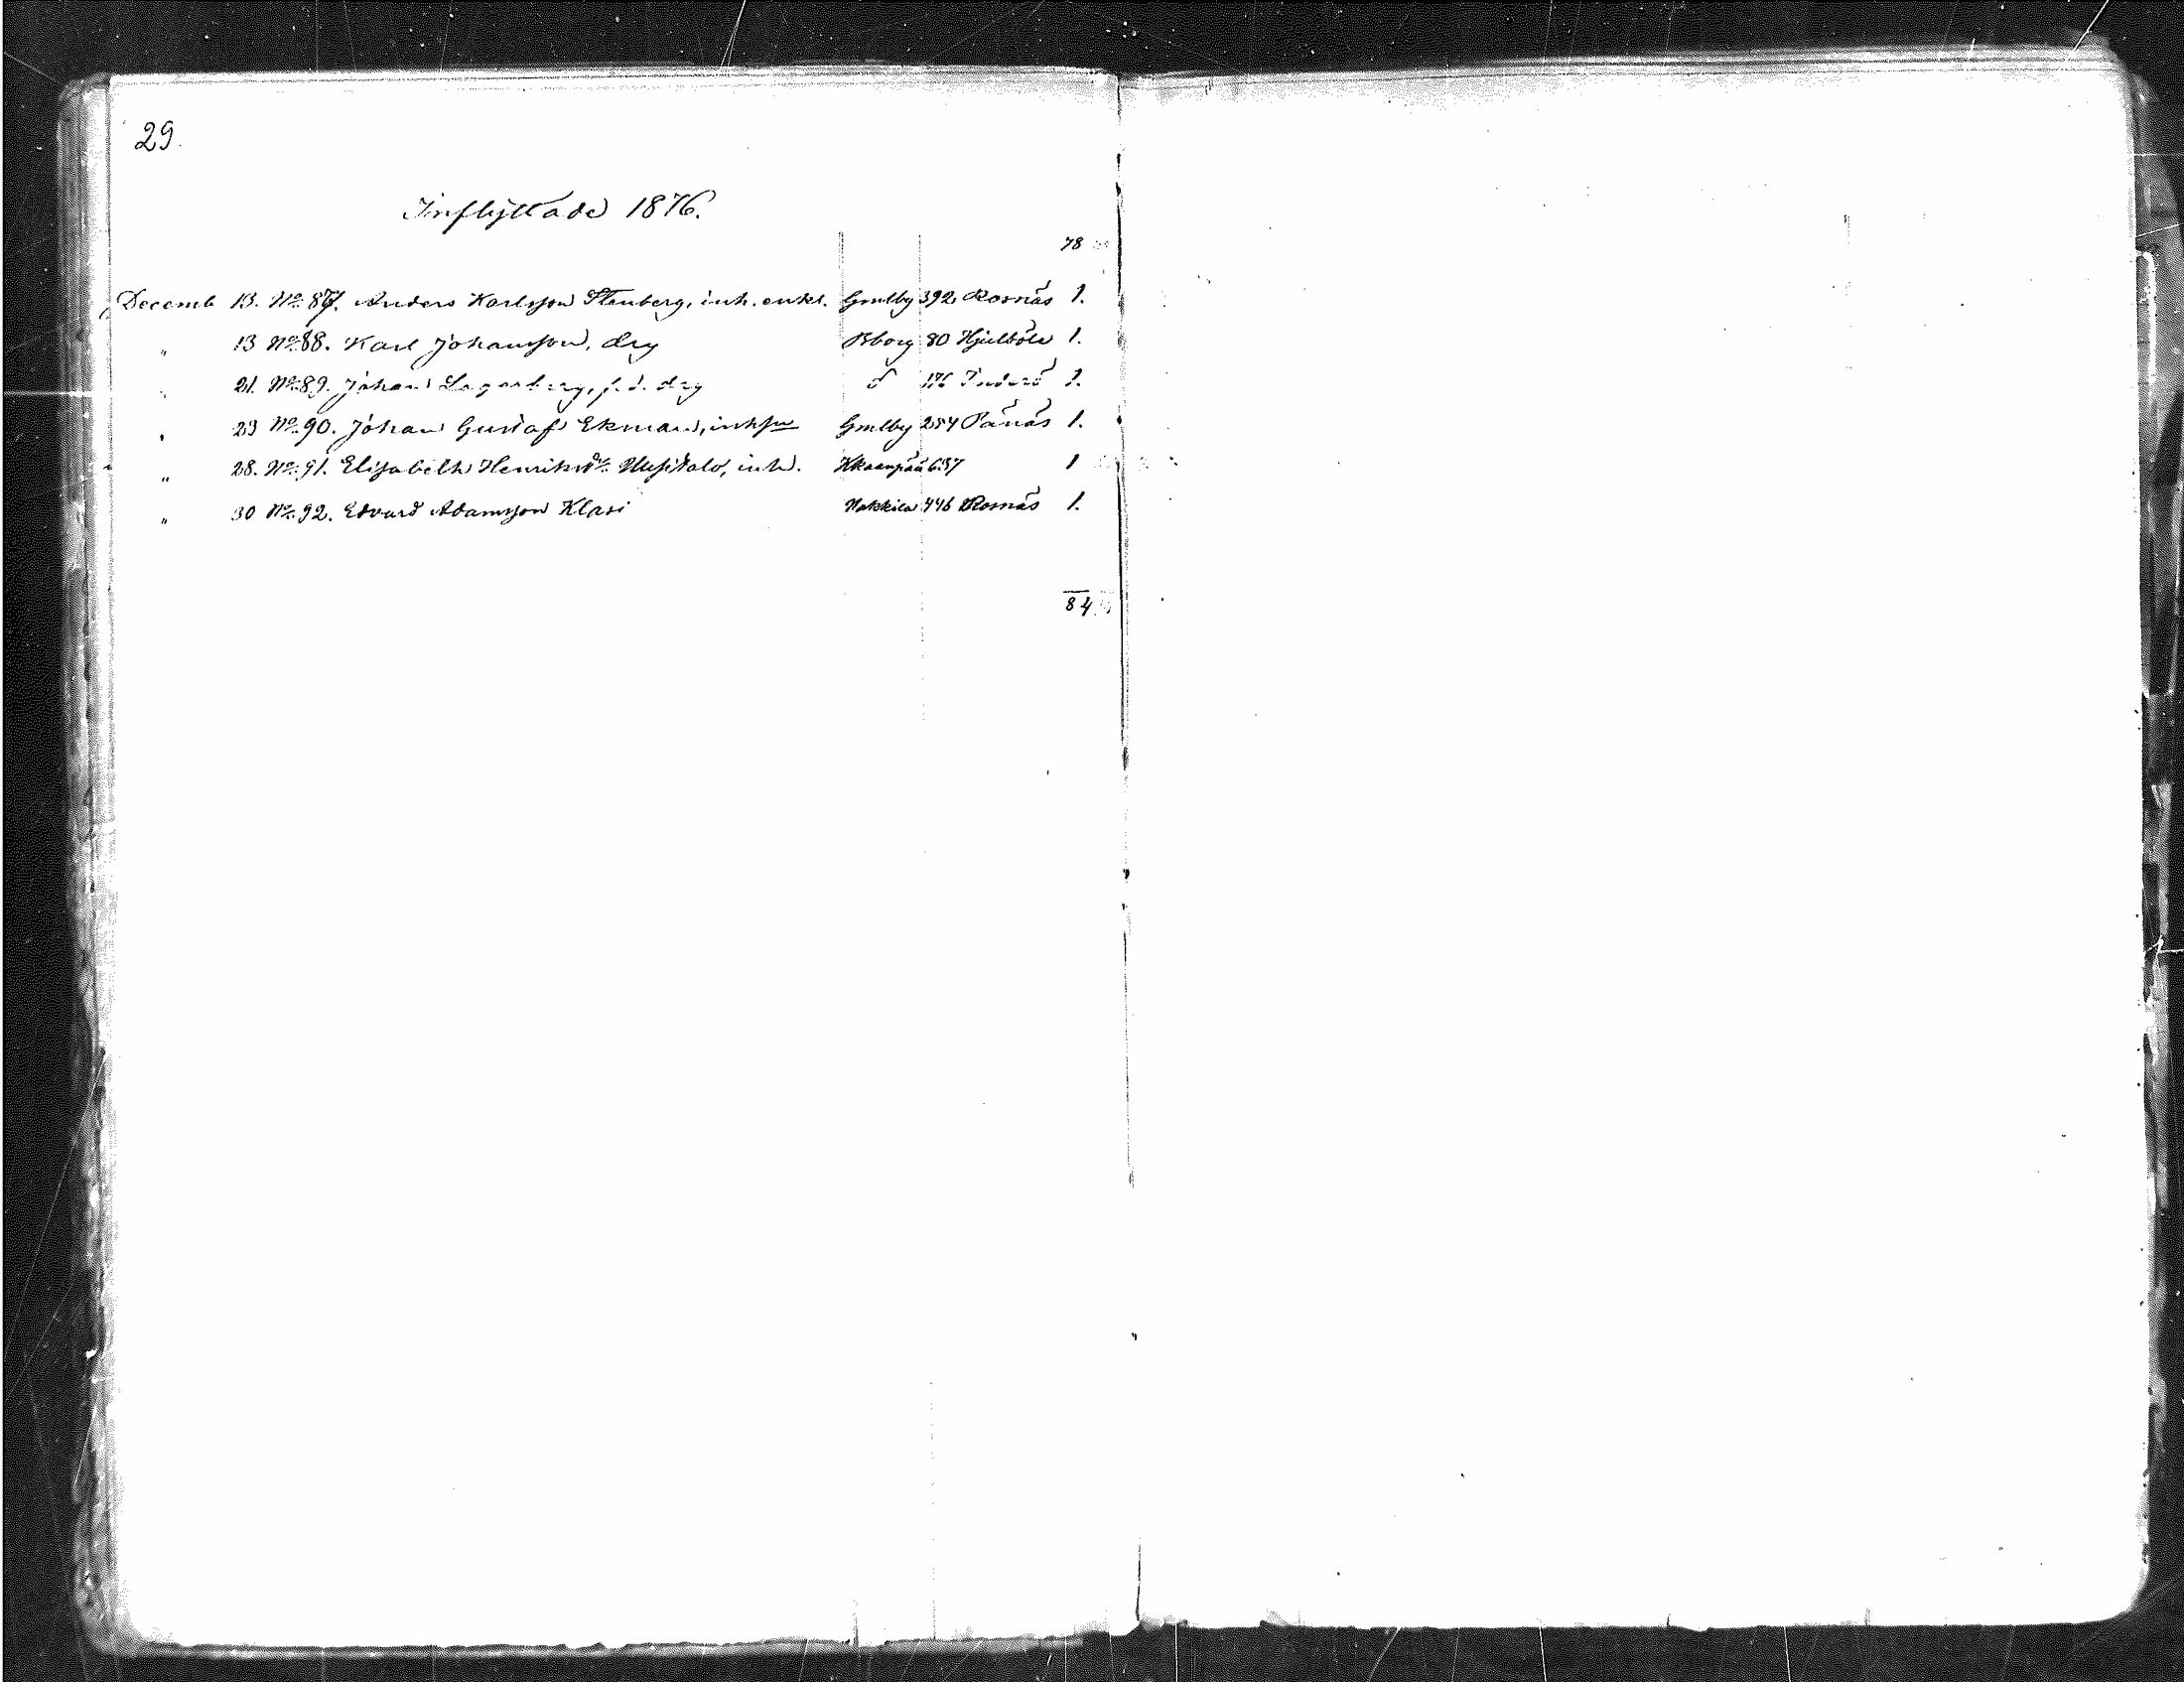 29.
Inflyttade 1876.
78
Decemb 13. No. 87. Anders Karlsson Stenberg, inh. enkl. Gmlby 392 Rosnäs 1.
" 13 No. 88. Karl Johansson, drg Bborg 80 Hjulböle 1.
" 21. No. 89. Johan Lagerberg, f.d. drg d 176 Inderö 1.
" 23 No. 90. Johan Gustaf Ekman, inhsn Gmlby 254 Pånäs 1.
" 28. No. 91. Elisabeth Henriksdr. Uusitalo, inh. Kkaanpää 637 1
" 30 No. 92. Edvard Adamsson Klasi Nakkila 446 Rosnäs 1.
84